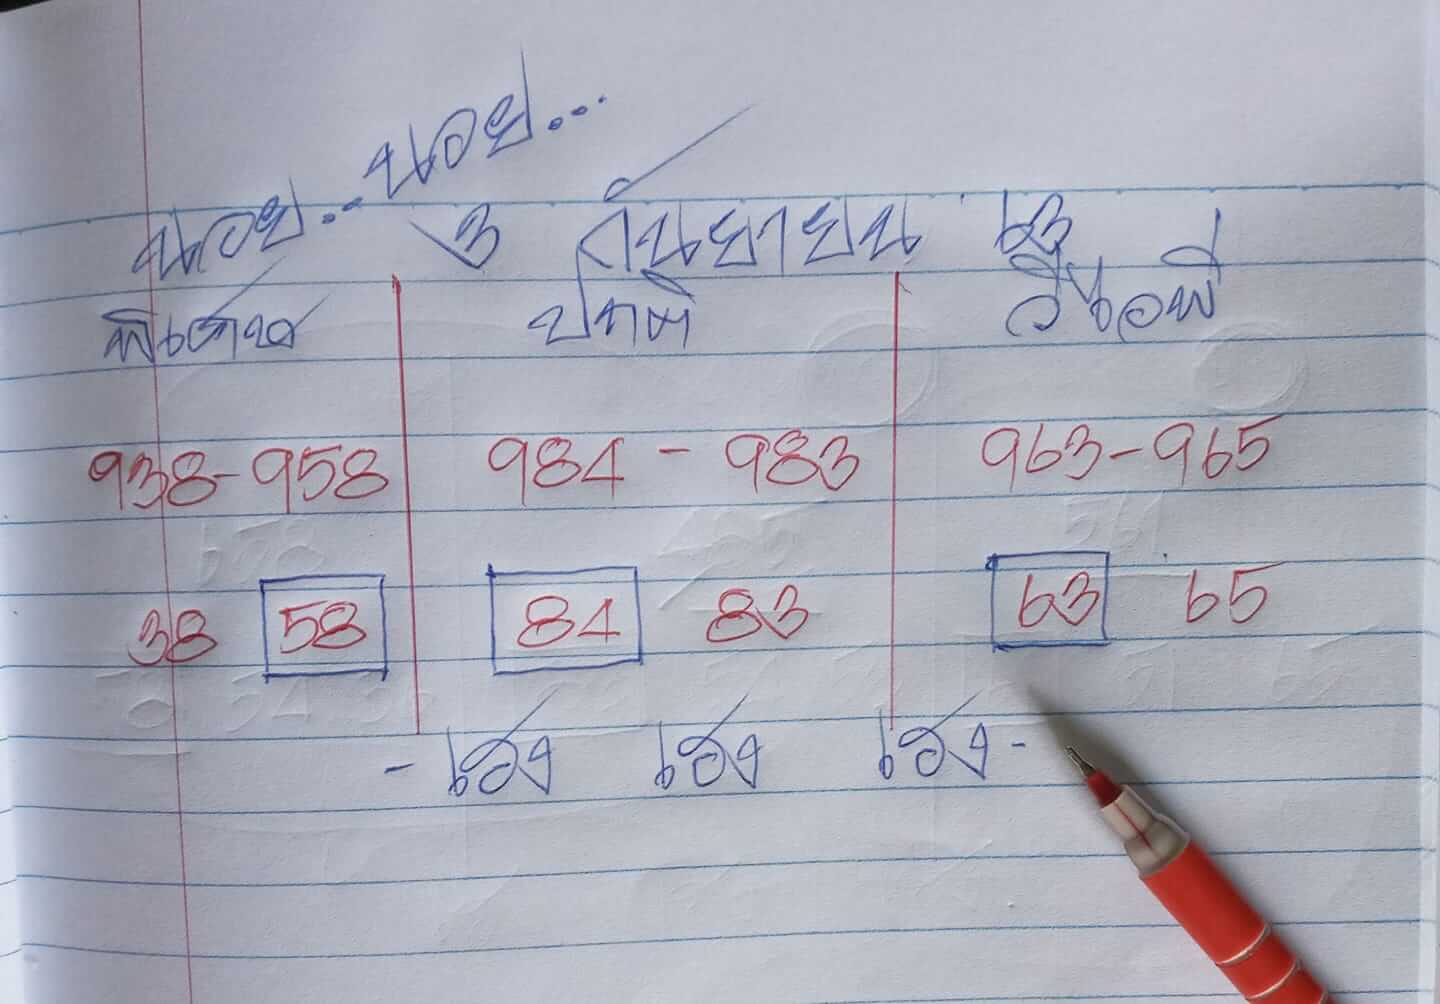 นอย... นอย...
3 กันยายน 63
พิเศษ ปกติ วีไอพี
938-958 984-983 963-965
38 58 84 83 63 65
- เฮง เฮง เฮง -